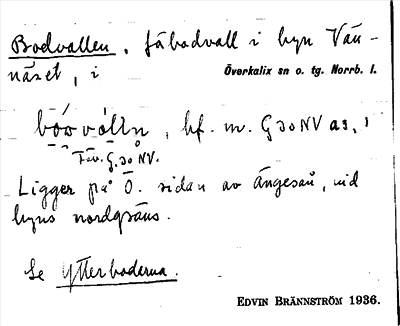 Bodvallen, fäbodvall i byn Vän-
näset, i
Överkalix sn o. tg. Norrb. l.
bōv̀vólln, bf. m. G 30 NV a3, 1
Fäv. G. 30 NV.
Ligger på Ö. sidan av Ängeså, vid
byns nordgräns.
Se Ytterbodarna.
EDVIN BRÄNNSTRÖM 1936.